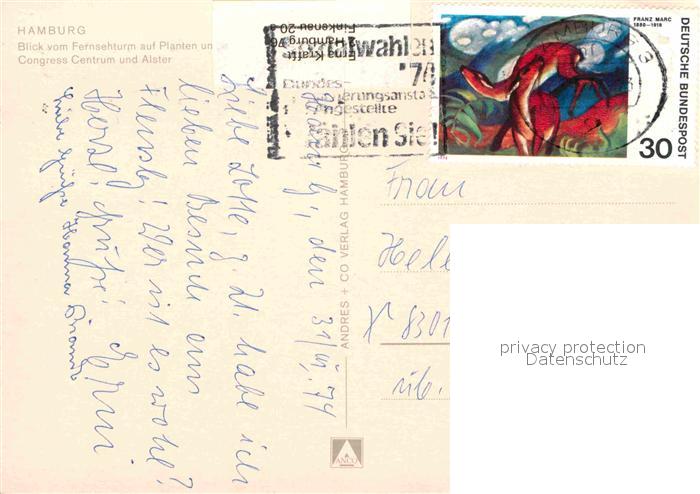 HAMBURG
Blick vom Fernsehturm auf Planten un
Congress Centrum und Alster
Erna Krafft
Hamburg 76
Finkenau 20 a
Sozialwahlen
'74
Bundes-
versicherungsanstalt
Angestellte
Wählen Sie!
Hamburg, den 31/VII.74
Liebe Lotte, z. Zt. habe ich
lieben Besuch aus
Flensbg! Wer ist es wohl?
Herzl. Grüße! Erni
Viele Grüße Hanna
Frau
8301
üb.
ANDRES + CO VERLAG HAMBURG
ANCO
FRANZ MARC
1880-1916
DEUTSCHE BUNDESPOST
30
HAMBURG
privacy protection
Datenschutz